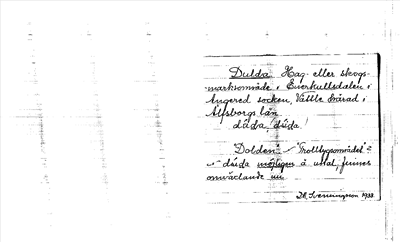 Dulda Hag- eller skogs-
marksområde i Everkullsdalen i
Angered socken, Vättle härad i
Älfsborgs län.
dúda, dúda!
"Dolden" - "Trollbygområdet"
dúda möjligen å uttal, finnes
omväxlande nu
1938